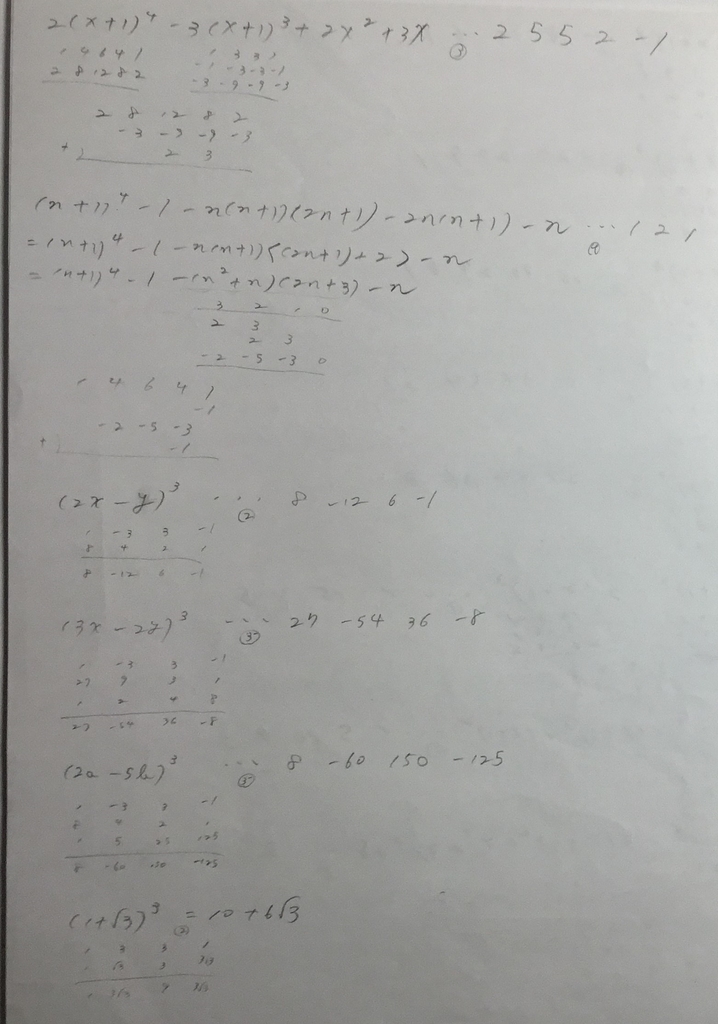 2(x+1)⁴ - 3(x+1)³ + 2x² + 3x ··· ③ 2 5 5 2 -1
1 4 6 4 1 1 3 3 1
2 8 12 8 2 -1 -3 -3 -1
-3 -9 -9 -3
2 8 12 8 2
-3 -9 -9 -3
+) 2 3
(n+1)⁴ - 1 - n(n+1)(2n+1) - 2n(n+1) - n ··· ④ 1 2 1
= (n+1)⁴ - 1 - n(n+1){(2n+1)+2} - n
= (n+1)⁴ - 1 - (n²+n)(2n+3) - n
3 2 1 0
2 3
2 3
-2 -5 -3 0
1 4 6 4 1
-1
-2 -5 -3
+) -1
(2x-y)³ ··· ② 8 -12 6 -1
1 -3 3 -1
8 4 2 1
8 -12 6 -1
(3x-2y)³ ··· ③ 27 -54 36 -8
1 -3 3 -1
27 9 3 1
1 2 4 8
27 -54 36 -8
(2a-5b)³ ··· ③ 8 -60 150 -125
1 -3 3 -1
8 4 2 1
1 5 25 125
8 -60 150 -125
(1+√3)³ = 10+6√3
②
1 3 3 1
1 √3 3 3√3
1 3√3 9 3√3